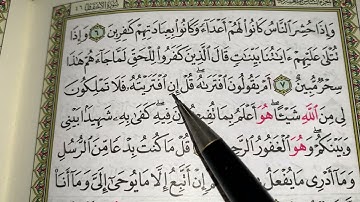 وَإِذَا حُشِرَ النَّاسُ كَانُوا لَهُمْ أَعْدَاءً وَكَانُوا بِعِبَادَتِهِمْ كَافِرِينَ ٦ وَإِذَا
تُتْلَىٰ عَلَيْهِمْ ءَايَاتُنَا بَيِّنَاتٍ قَالَ الَّذِينَ كَفَرُوا لِلْحَقِّ لَمَّا جَاءَهُمْ هَٰذَا
سِحْرٌ مُّبِينٌ ٧ أَمْ يَقُولُونَ افْتَرَىٰهُ قُلْ إِنِ افْتَرَيْتُهُ فَلَا تَمْلِكُونَ
لِي مِنَ اللَّهِ شَيْئًا هُوَ أَعْلَمُ بِمَا تُفِيضُونَ فِيهِ كَفَىٰ بِهِ شَهِيدًا بَيْنِي
وَبَيْنَكُمْ وَهُوَ الْغَفُورُ الرَّحِيمُ قُلْ مَا كُنتُ بِدْعًا مِّنَ الرُّسُلِ
وَمَا أَدْرِي مَا يُفْعَلُ إِنْ أَتَّبِعُ إِلَّا مَا يُوحَىٰ إِلَيَّ وَمَا أَنَا